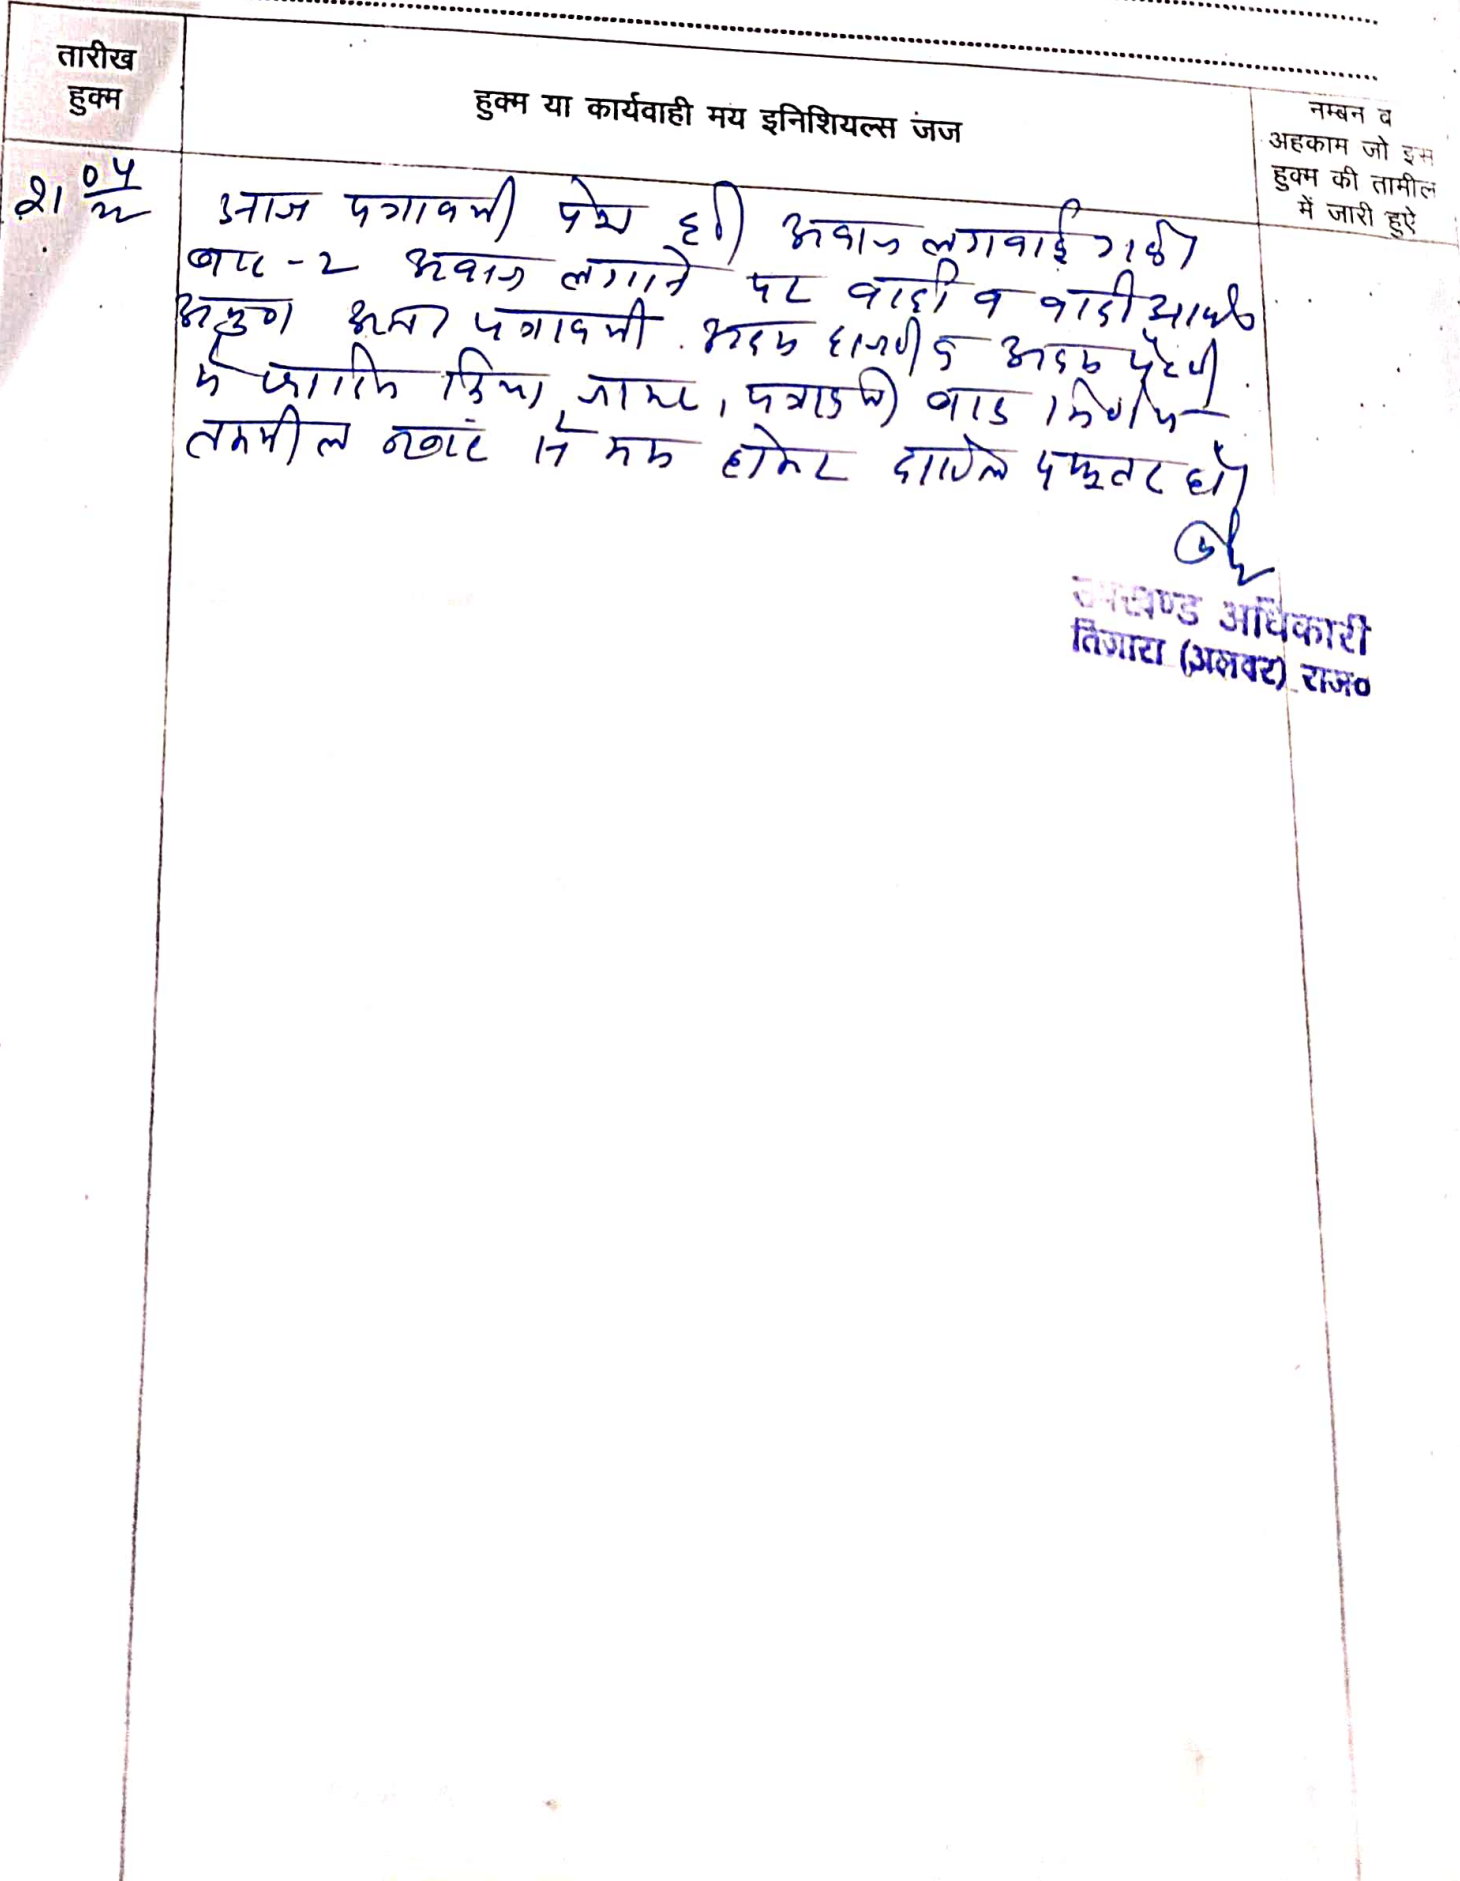 तारीख
हुक्म
हुक्म या कार्यवाही मय इनिशियल्स जज
नम्बन व
अहकाम जो इस
हुक्म की तामील
में जारी हुऐ
21 04/22
आज पत्रावली पेश हुई अवाज लगवाई गई।
बार-2 अवाज लगाने पर वादी व वादी
पत्रावली अदम हाजरी व अदम पैरवी
में खारिज किया जाता, पत्रावली बाद
तकमील नम्बर से कम होकर दाखिल दफ्तर हो।
उपखण्ड अधिकारी
तिजारा (अलवर) राज०